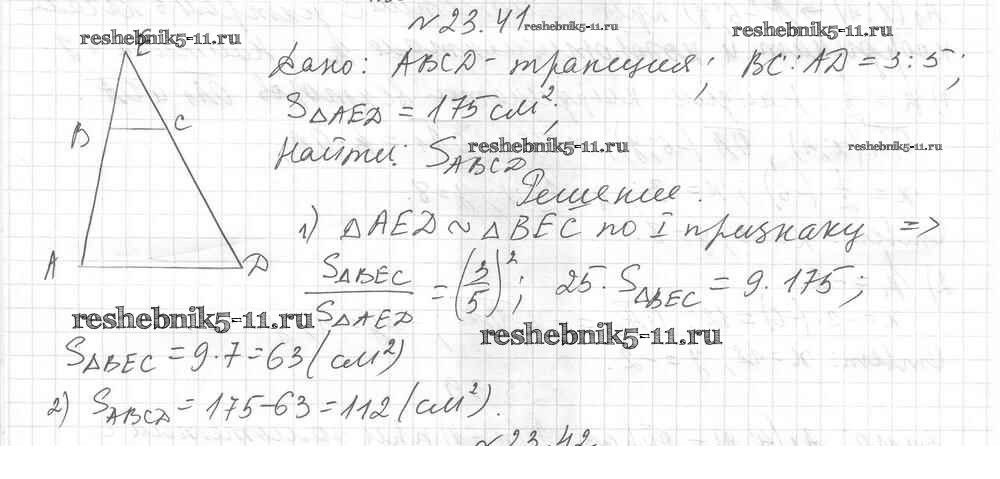 № 23.41 reshebnik5-11.ru
reshebnik5-11.ru reshebnik5-11.ru
E
Дано: ABCD - трапеция; BC : AD = 3 : 5;
S△AED = 175 см²;
B C
Найти: SABCD reshebnik5-11.ru reshebnik5-11.ru
Решение.
1) △AED ~ △BEC по I признаку =>
A D
S△BEC / S△AED = (3/5)²; 25 · S△BEC = 9 · 175;
reshebnik5-11.ru reshebnik5-11.ru
S△BEC = 9 · 7 = 63 (см²)
2) SABCD = 175 - 63 = 112 (см²).
№ 23.42.